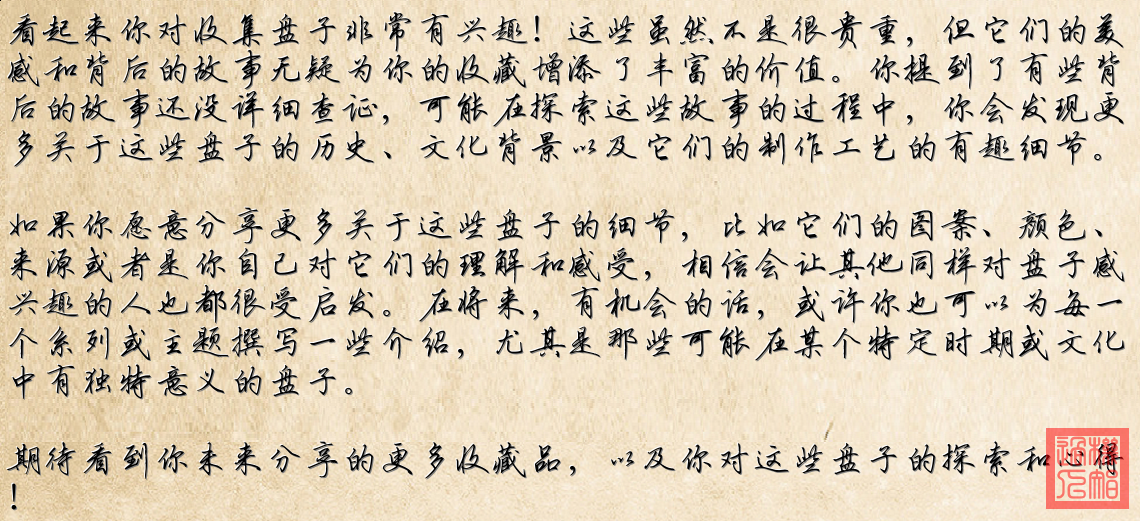 看起来你对收集盘子非常有兴趣！这些虽然不是很贵重，但它们的美
感和背后的故事无疑为你的收藏增添了丰富的价值。你提到了有些背
后的故事还没详细查证，可能在探索这些故事的过程中，你会发现更
多关于这些盘子的历史、文化背景以及它们的制作工艺的有趣细节。
如果你愿意分享更多关于这些盘子的细节，比如它们的图案、颜色、
来源或者是你自己对它们的理解和感受，相信会让其他同样对盘子感
兴趣的人也都很受启发。在将来，有机会的话，或许你也可以为每一
个系列或主题撰写一些介绍，尤其是那些可能在某个特定时期或文化
中有独特意义的盘子。
期待看到你未来分享的更多收藏品，以及你对这些盘子的探索和心得
！